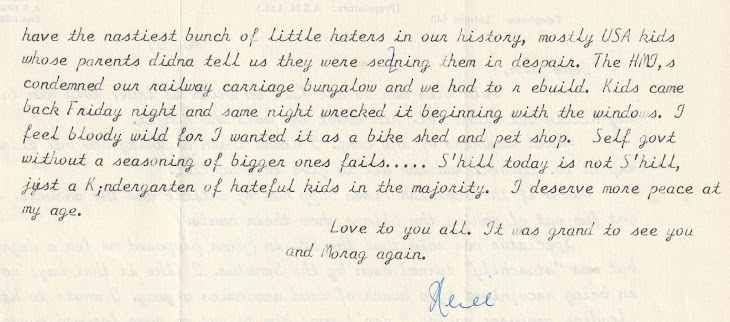 have the nastiest bunch of little haters in our history, mostly USA kids
whose parents didna tell us they were sedning them in despair. The HMI,s
condemned our railway carriage bungalow and we had to r ebuild. Kids came
back Friday night and same night wrecked it beginning with the windows. I
feel bloody wild for I wanted it as a bike shed and pet shop. Self govt
without a seasoning of bigger ones fails..... S'hill today is not S'hill,
just a K;ndergarten of hateful kids in the majority. I deserve more peace at
my age.
Love to you all. It was grand to see you
and Morag again.